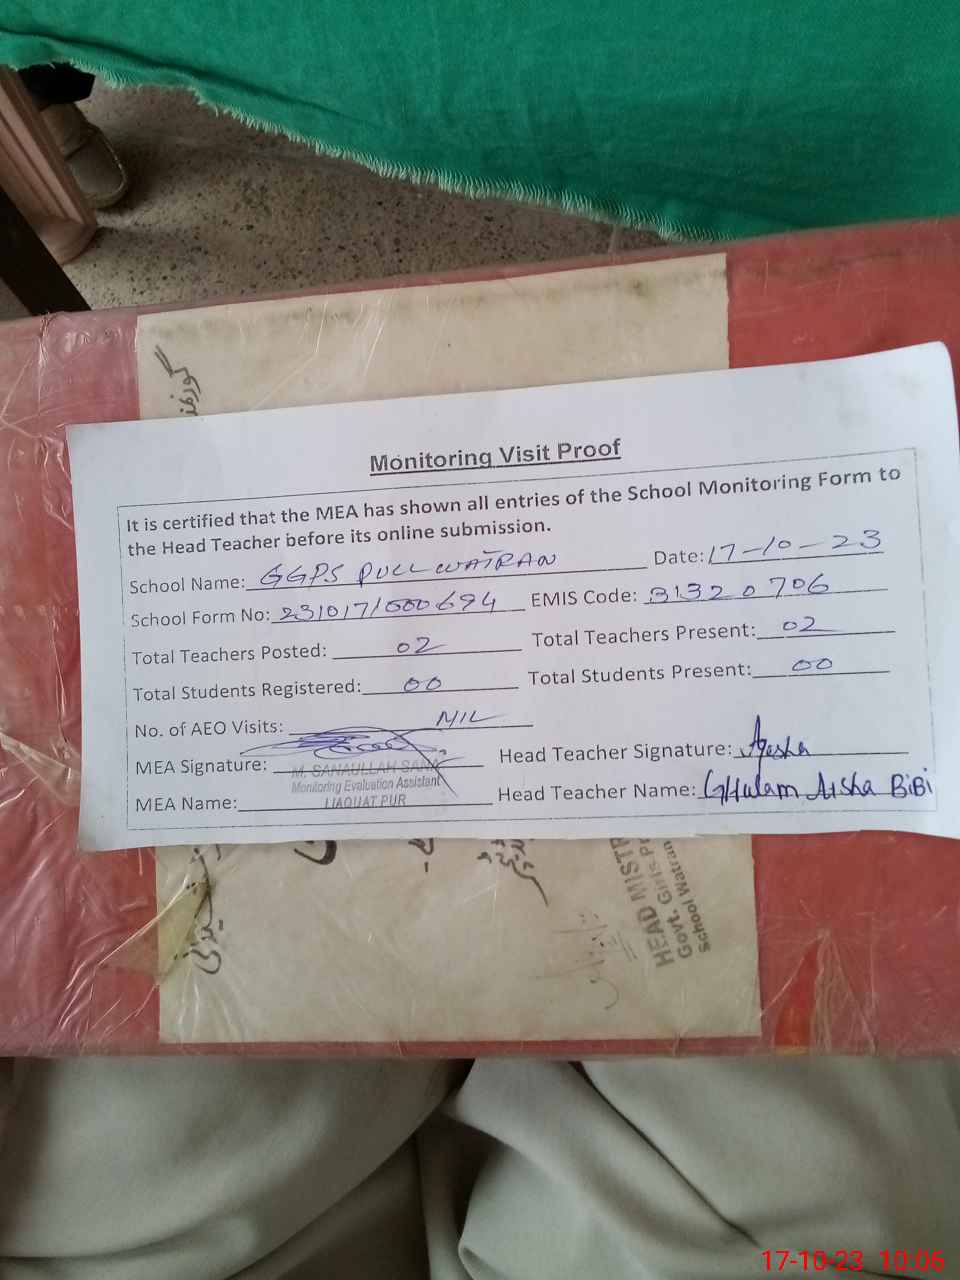 گورنمنٹ
Monitoring Visit Proof
It is certified that the MEA has shown all entries of the School Monitoring Form to
the Head Teacher before its online submission.
School Name: GGPS PULL WATRAN Date: 17-10-23
School Form No: 231017/000694 EMIS Code: 31320706
Total Teachers Posted: 02 Total Teachers Present: 02
Total Students Registered: 00 Total Students Present: 00
No. of AEO Visits: NIL
MEA Signature: Head Teacher Signature: Ayesha
M. SANAULLAH SANA
Monitoring Evaluation Assistant
LIAQUAT PUR
MEA Name: Head Teacher Name: GHulam AISha BiBi
HEAD MISTR
Govt. Girls Pr
School Watran
17-10-23 10:06